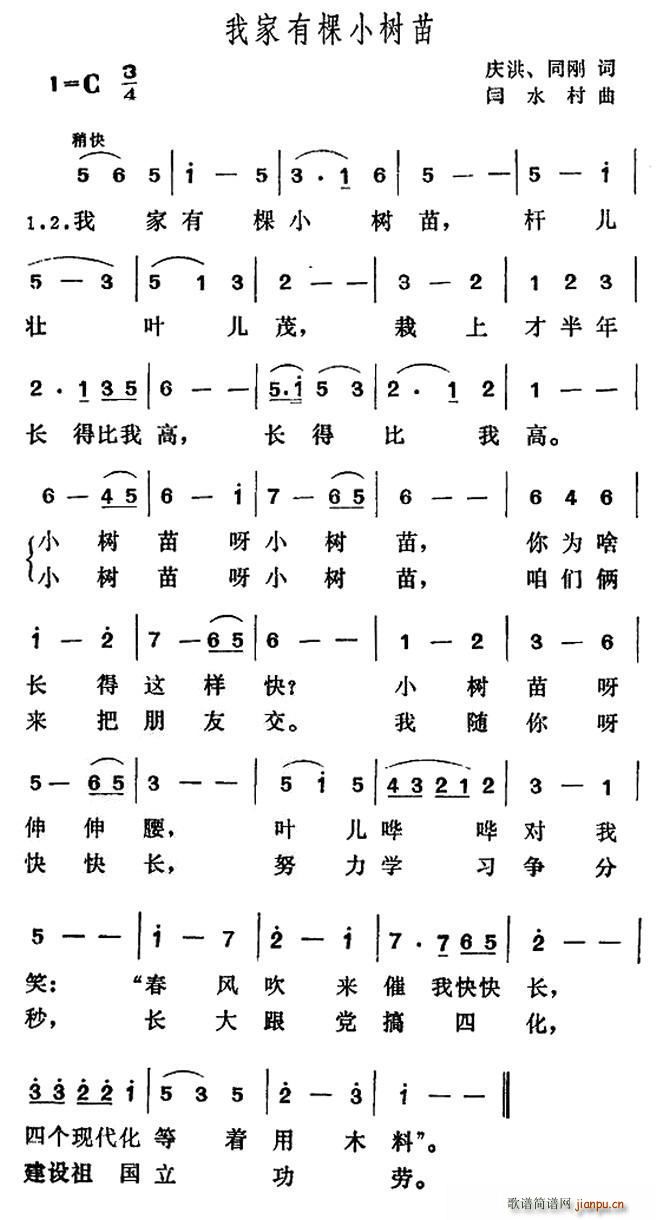 我家有棵小树苗
1=C 3/4
庆洪、同刚 词
闫水村 曲
稍快
5 6 5 | i — 5 | 3 · 1 6 | 5 — — | 5 — i |
1.2.我 家有 棵小 树苗， 杆儿
5 — 3 | 5 1 3 | 2 — — | 3 — 2 | 1 2 3 |
壮 叶儿茂， 栽上才半年
2 · 1 3 5 | 6 — — | 5 · i 5 3 | 2 · 1 2 | 1 — — |
长得比我高， 长得比我高。
6 — 4 5 | 6 — i | 7 — 6 5 | 6 — — | 6 4 6 |
小树苗呀小树苗， 你为啥
小树苗呀小树苗， 咱们俩
i — 2 | 7 — 6 5 | 6 — — | 1 — 2 | 3 — 6 |
长得这样快？ 小树苗呀
来把朋友交。 我随你呀
5 — 6 5 | 3 — — | 5 i 5 | 4 3 2 1 2 | 3 — 1 |
伸伸腰， 叶儿哗哗对我
快快长， 努力学习争分
5 — — | i — 7 | 2 — i | 7 · 7 6 5 | 2 — — |
笑：“春风吹来催我快快长，
秒， 长大跟党搞四化，
3 3 2 2 i | 5 3 5 | 2 — 3 | i — — ‖
四个现代化等着用木料”。
建设祖国立功劳。
歌谱简谱网 jianpu.cn